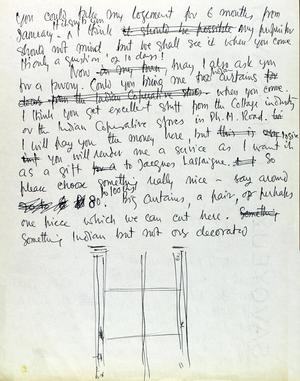 you could take my logement for 6 months from
January. I think it should be possible my proprietor
should not mind but we shall see it when you come
It's only a question of 10 days!
Now may I also ask you
for a favour. Could you bring me two curtains for
from the Indian when you come.
I think you get excellent stuff from the Cottage industry
or the Indian Coperative Stores in Ph. M. Road.
I will pay you the money here! but this is
but you will render me a service as I want it
as a gift to Jacques Lassaigne. So
please choose something really nice - say around
80 to 100 Rs. Big curtains, a pair, or perhaps
one piece which we can cut here. Something
Something Indian but not ors decorated